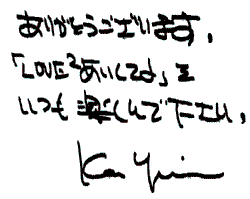 ありがとうございます。
「LOVE²あいしてる」を
いつも楽しんで下さい。